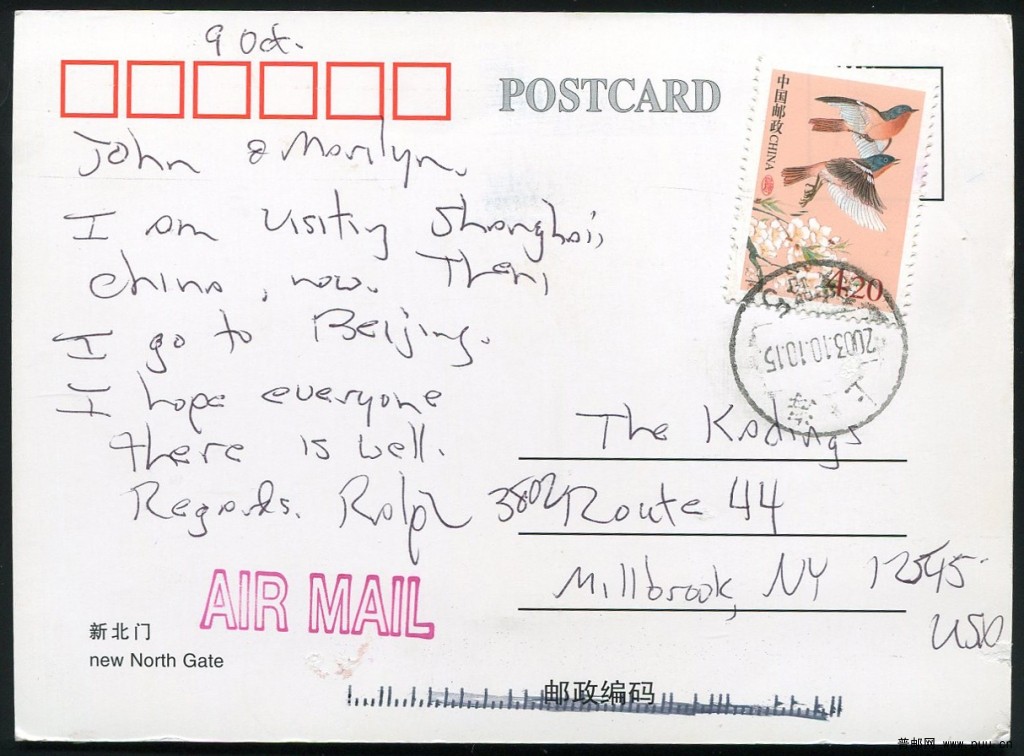 9 Oct.
POSTCARD
中国邮政 CHINA
420
John & Marilyn,
I am visiting Shanghai,
China, now. Then,
I go to Beijing.
I hope everyone
there is well.
Regards. Ralph
2003.10.10.15
上
The
Route 44
Millbrook, NY 12545
USA
AIR MAIL
新北门
new North Gate
邮政编码
普邮网 www.puu.cn